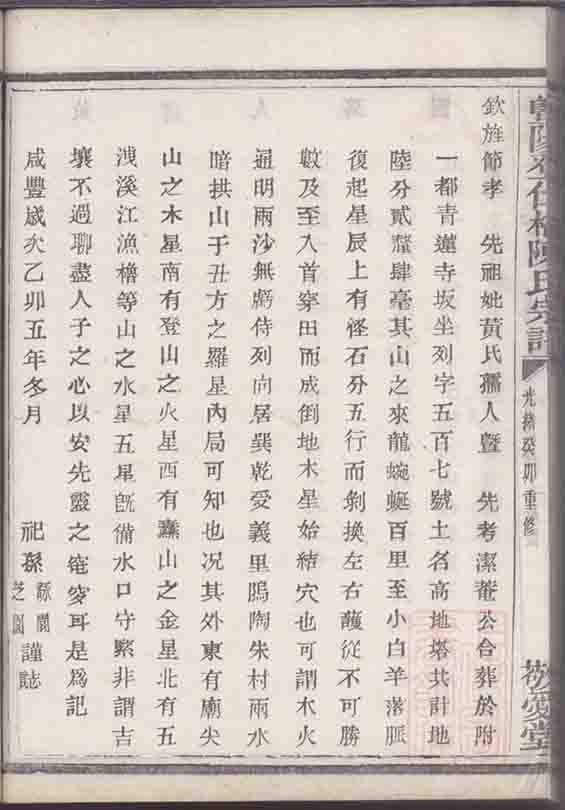 陽
陳氏宗譜
光緒癸卯重修
敬愛堂
欽旌節孝 先祖妣黃氏孺人暨 先考潔菴公合葬於附
一都青蓮寺坂坐列字五百七號土名高地塔共計地
陸分貳釐肆毫其山之來龍蜿蜒百里至小白羊落脈
復起星辰上有怪石分五行而剝換左右護從不可勝
數及至入首穿田而成倒地木星始結穴也可謂木火
通明兩沙無虧侍列向居巽乾受義里鳴陶朱村兩水
暗拱山于丑方之羅星內局可知也况其外東有廟尖
山之木星南有登山之火星西有蠡山之金星北有五
洩溪江漁櫓等山之水星五星旣備水口守緊非謂吉
壤不過聊盡人子之心以安先靈之窀穸耳是為記
咸豐歲次乙卯五年冬月 祀孫 謹誌